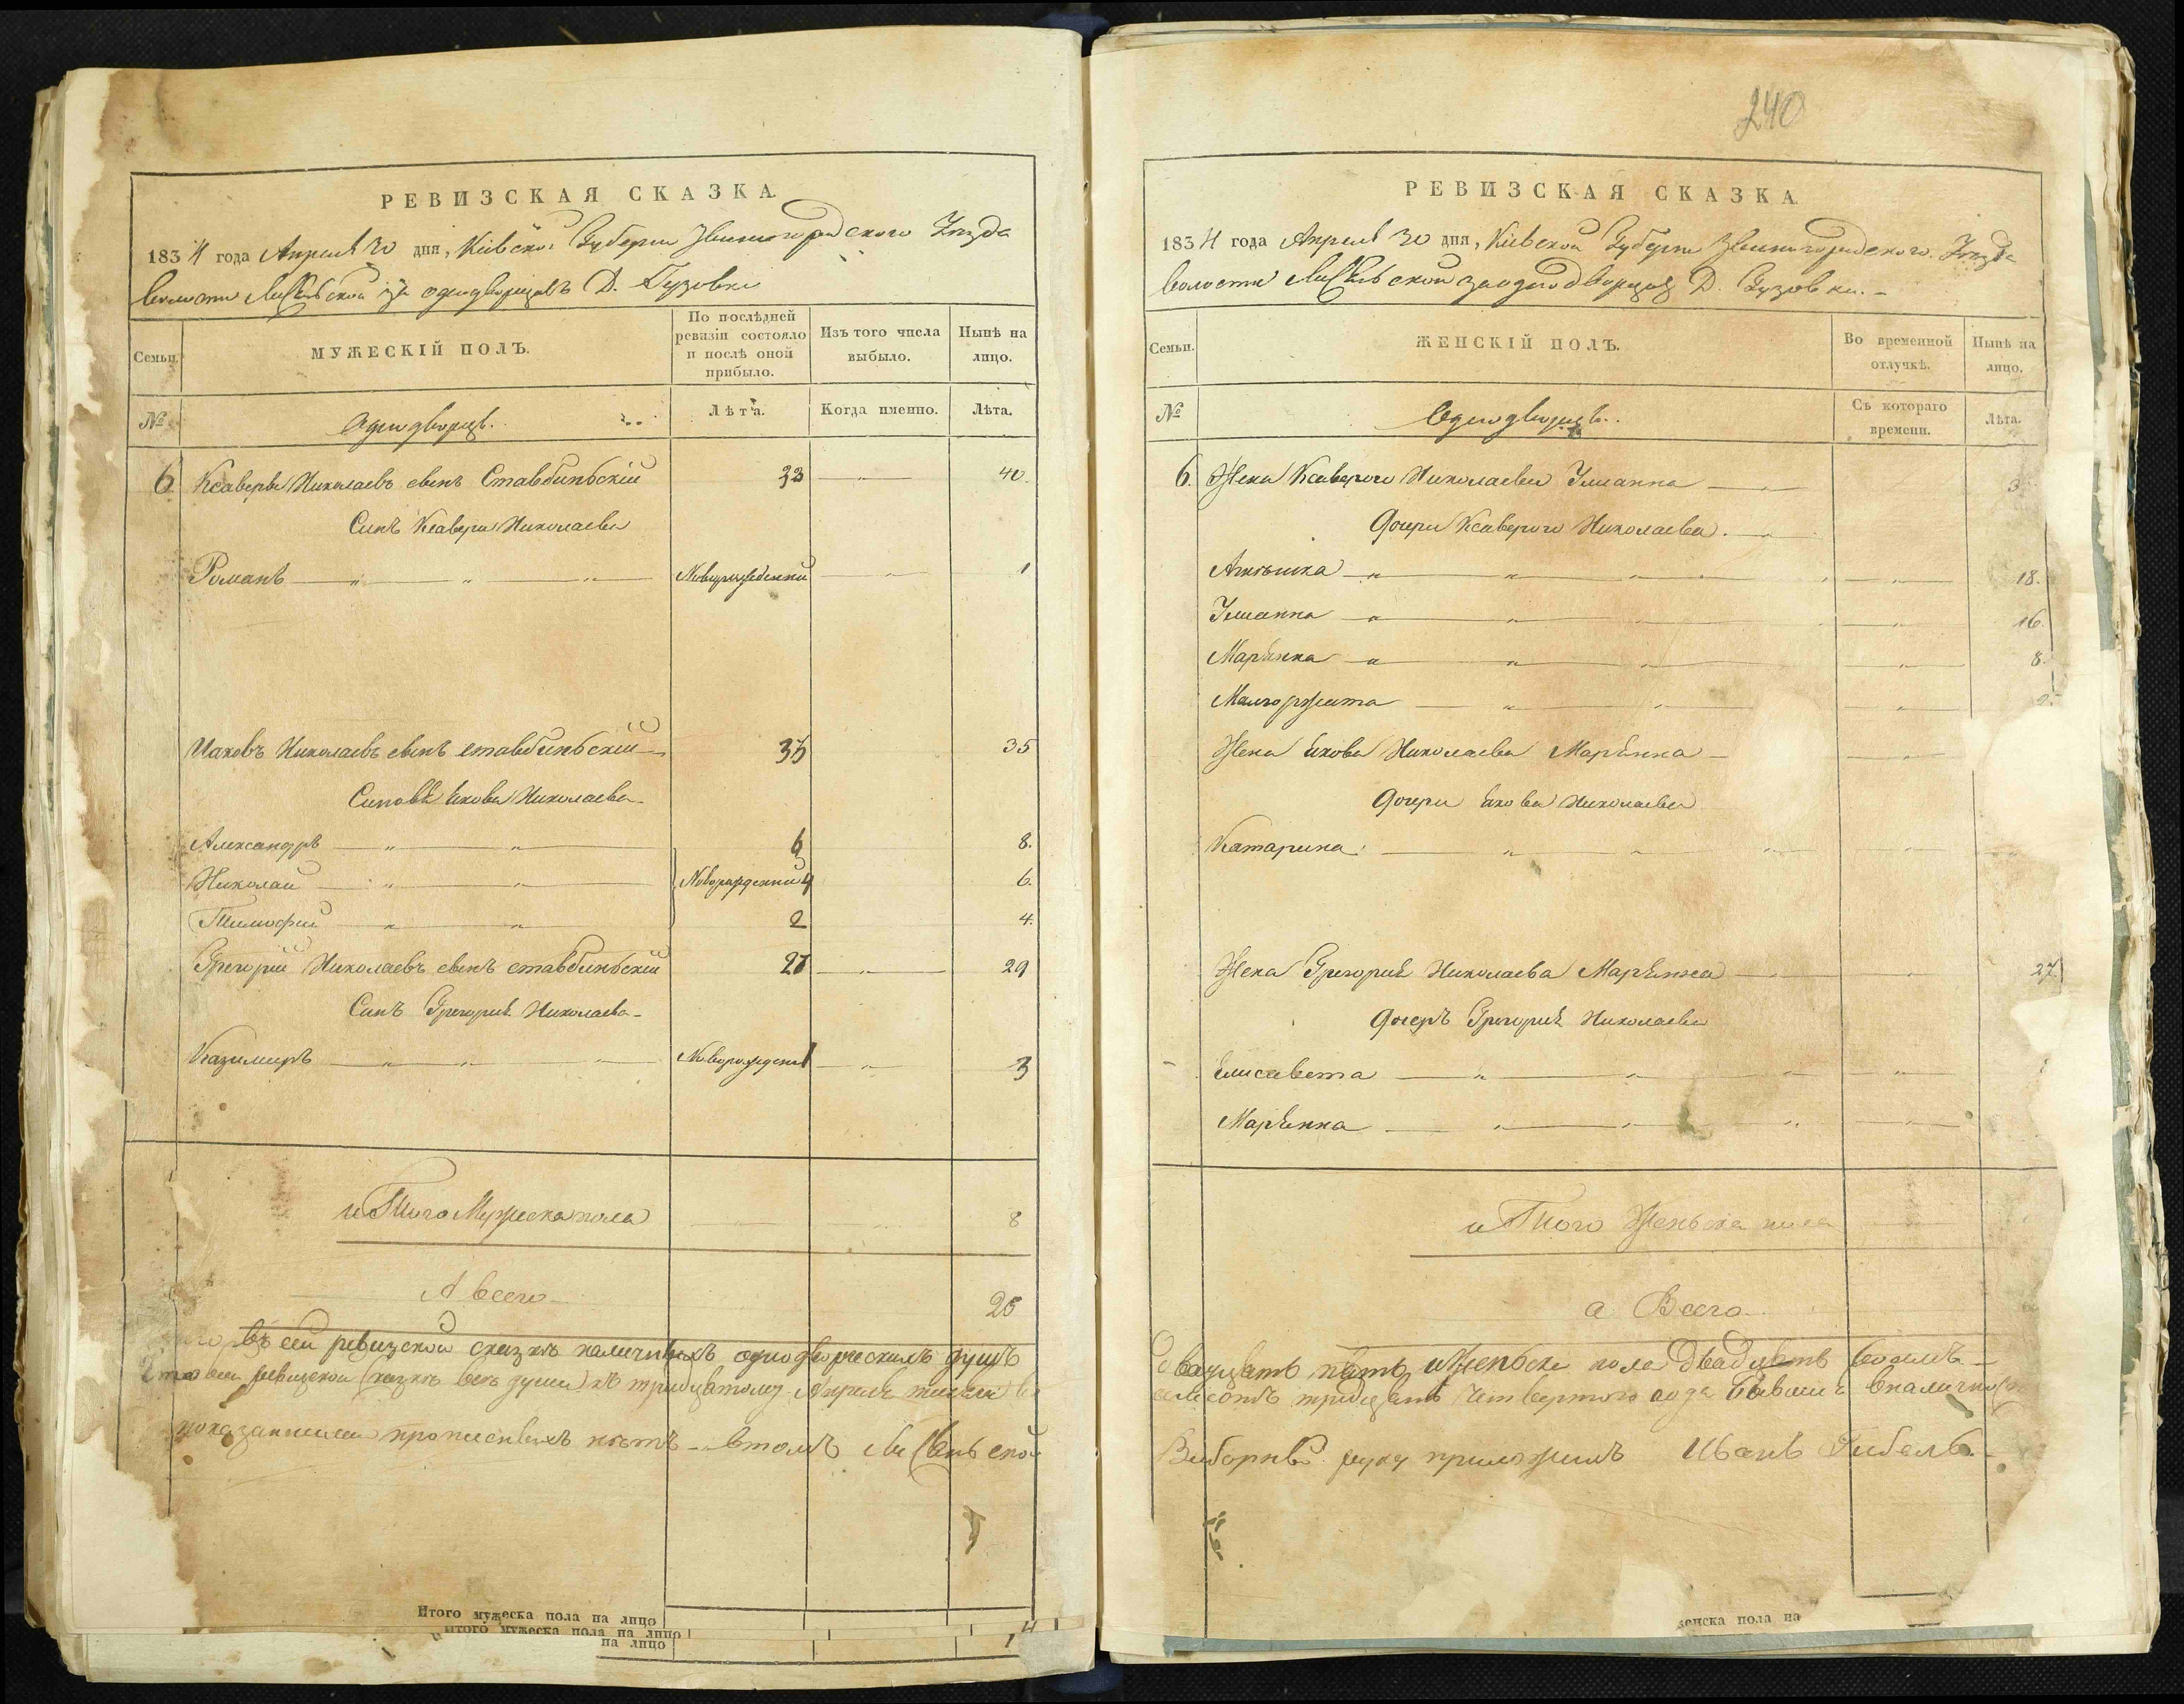 240
РЕВИЗСКАЯ СКАЗКА
1834 года Апреля 30 дня, Кіевской Губерни Звиногородского Уезда
Волости Лисянской одгодворцовъ Д. Гузовки
Семьи.
МУЖЕСКІЙ ПОЛЪ.
По послѣдней ревизіи состояло и послѣ оной прибыло.
Изъ того числа выбыло.
Нынѣ на лицо.
№
Одгодворцъ.
Лѣта.
Когда именно.
Лѣта.
6 Ксаверы Николаевъ сынъ Ставбинскій 33 40.
Синъ Ксавери Николаева
Романъ Новорожденни 1
Иаковъ Николаевъ сынъ Ставбинскій 33 35
Синовѣ Якова Николаева
Александръ 6 8.
Николай Новорожденни 4 6.
Тимофий 2 4.
Григорій Николаевъ сынъ Ставбинскій 27 29
Синъ Григорія Николаева
Казимиръ Новорожден 1 3
и Того Мужеска пола 8
А всего 25
въ сей ревизской сказкѣ наличныхъ однодворческихъ душъ
сей ревизской сказкѣ всѣ души къ тридцатому Апреля
показанними прописныхъ нѣтъ втомъ Лисянской
Итого мужеска пола на лицо
Итого мужеска пола на лицо
на лицо
РЕВИЗСКАЯ СКАЗКА
1834 года Апреля 30 дня, Кіевской Губерни Звиногородского Уезда
Волости Лисянской заодгодворцовъ Д. Гузовки.
Семьи.
ЖЕНСКІЙ ПОЛЪ.
Во временной отлучкѣ.
Нынѣ на лицо.
№
Одгодворцовъ.
Съ котораго времени.
Лѣта.
6. Жена Ксаверого Николаева Улианна 3
Дочери Ксаверого Николаева.
Агнѣшка 18.
Улианна 16.
Маріянна 8.
Малгоржата
Жена Якова Николаева Маріянна
Дочери Якова Николаева
Катарина
Жена Григорія Николаева Маріянна 27
Дочеръ Григорія Николаева
Елисавета
Маріянна
и Того Женска пола
а Всего
двадцать пять иЖенска пола двадцать восемь
тридцать Четвертого года бывших вналичности
Виборны руку приложилъ Иванъ
женска пола на